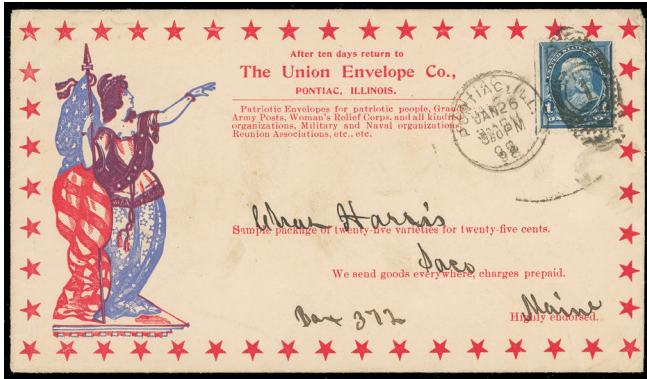 After ten days return to
The Union Envelope Co.,
PONTIAC, ILLINOIS.
Patriotic Envelopes for patriotic people, Grand
Army Posts, Woman's Relief Corps, and all kindred
organizations, Military and Naval organizations,
Reunion Associations, etc., etc.
PONTIAC, ILL.
JAN 26
PM
98
Chas Harris
Sample package of twenty-five varieties for twenty-five cents.
Saco
We send goods everywhere, charges prepaid.
Box 372
Maine
Highly endorsed.